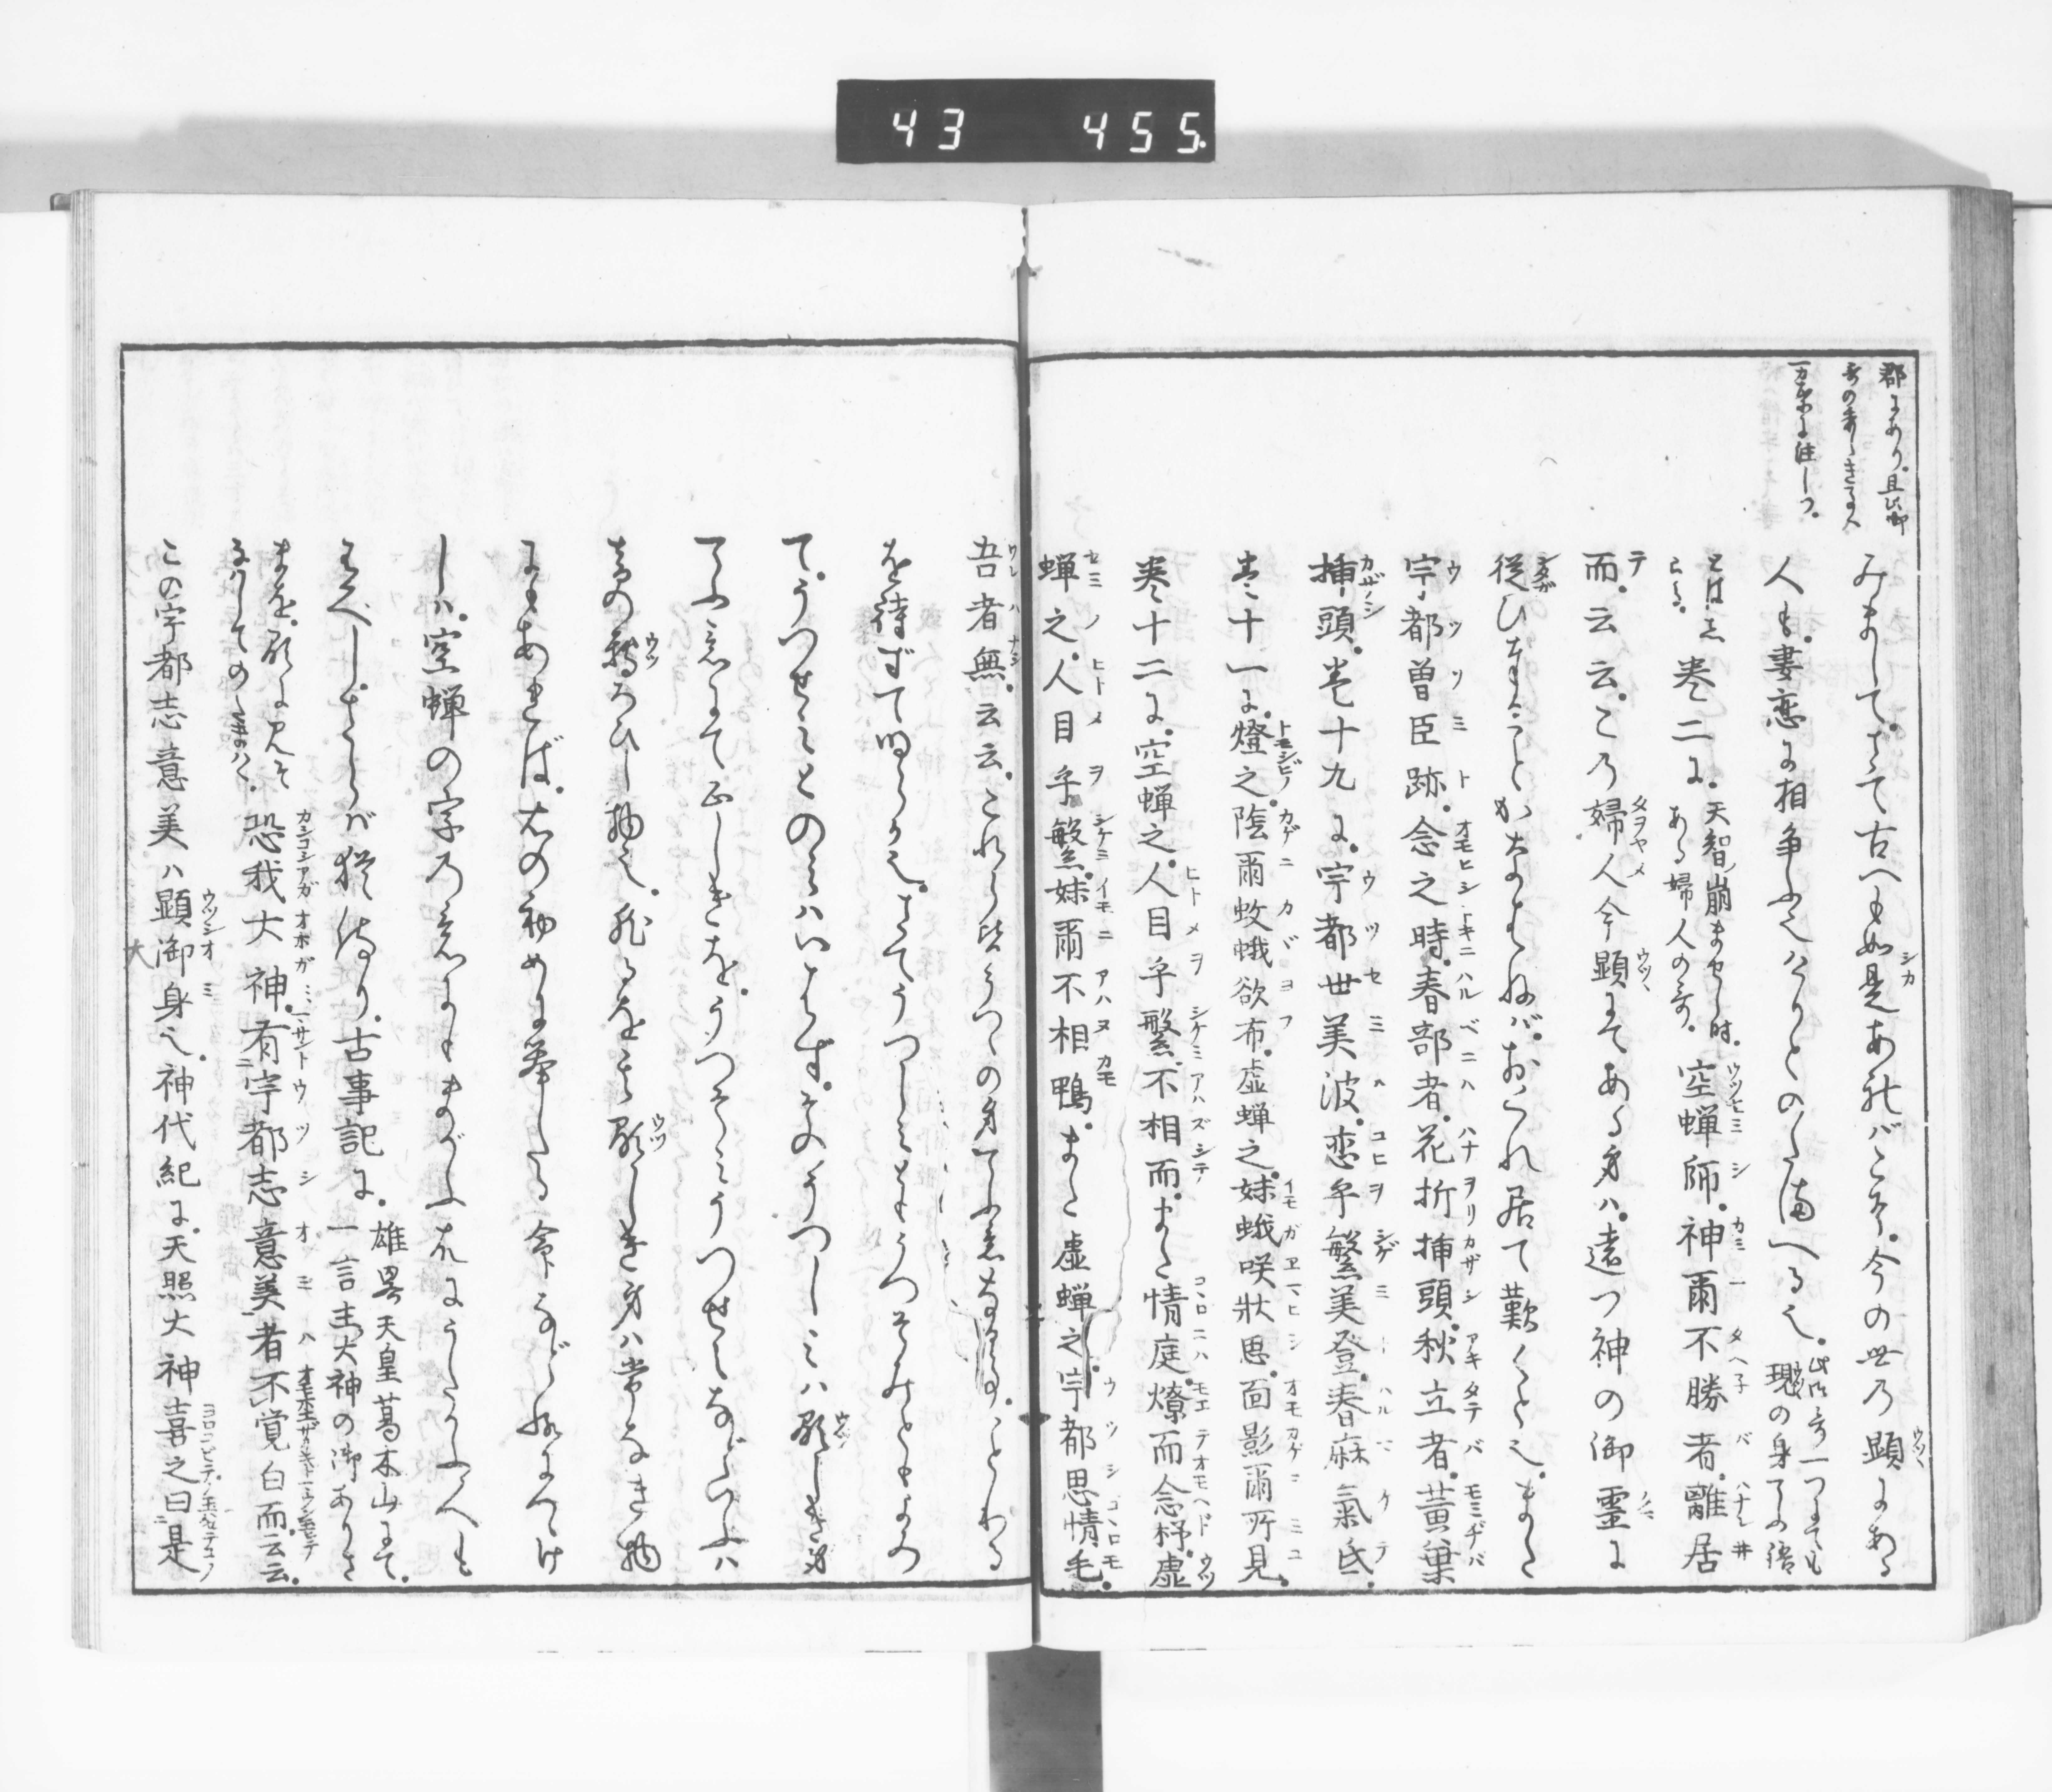 43 455.
郡にあり。且此御
哥の委しき事ハ
万葉に注しつ。
みまして。さて古へも如是あれバこそ。今の世乃顕にある
人も。妻恋に相争ふ也けりとのたまへる也。此次哥一つにても現の身てふ語
とはしらる。巻二に。天智崩ましゝ時。ある婦人の哥。空蝉師。神爾不勝者。離居
而。云云。こ乃婦人今顕にてある身ハ。遠つ神の御霊に
従ひまゐらんとかなはねバ。おくれ居て歎くと也。また
宇都曽臣跡。念之時。春部者。花折挿頭。秋立者。黄葉
挿頭。巻十九に。宇都世美波。恋乎繁美登。春麻氣氐。
巻十一に。燈之。陰爾蚊蛾欲布。虚蝉之。妹蛾咲狀思。面影爾所見。
巻十二に。空蝉之。人目乎繁。不相而。また情庭。燎而念杼。虚
蝉之。人目乎繁。妹爾不相鴨。また虚蝉之。宇都思情毛。
吾者無。云云。これら皆うつゝの身てふ意なる。ことわる
を待ずて明らか也。さてうつしみをうつそみともよみ
て。うつせみとのみハいはず。そのうつしみハ顕しき身
てふ意にて正しきを。うつそみうつせみなどいふハ
言の転ろひし物也。然るをその顕しき身ハ常なき物
にしあれば。右の初めに挙たる命などに冠らせつけ
しハ。空蝉の字乃意にもまがふ
すべし。さらバ猶徴あり。古事記に。雄畧天皇葛木山にて。一言主大神の御ありさ
まを。顕に見そなはしてのたまはく。恐我大神。有宇都志意美者。不覚白而云云。
この宇都志意美ハ顕御身也。神代紀に。天照大神喜之曰是